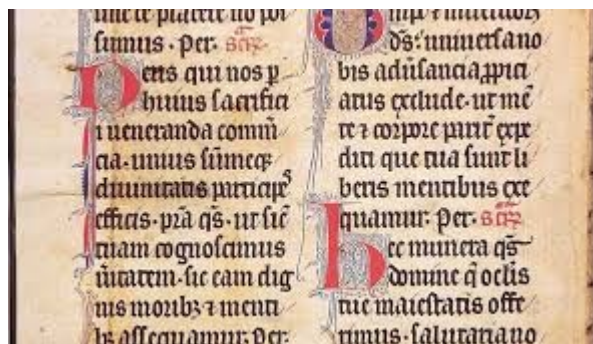 te placere no pos
sumus . Per. secr̄
Deus qui nos ꝑ
huius sacrifici
i ueneranda comm̄
cia. unius sūmeqꝫ
diuinitatis participeꝰ
efficis. pr̄a qs̄. ut sic̄
tuam cognoscimus
ūitatem. sic eam dig
nis moribꝫ ⁊ menti
bꝫ assequamur. Per.
Omp̄ ⁊
ds̄. uniuersa no
bis adūsancia ꝓpici
atus exclude. ut mē
te ⁊ corpore parit̄ expe
diti que tua sunt li
beris mentibus exe
quamur. Per. secr̄
hec munera qs̄
domine q̄ oclis
tue maiestatis offe
rimus. salutaria no